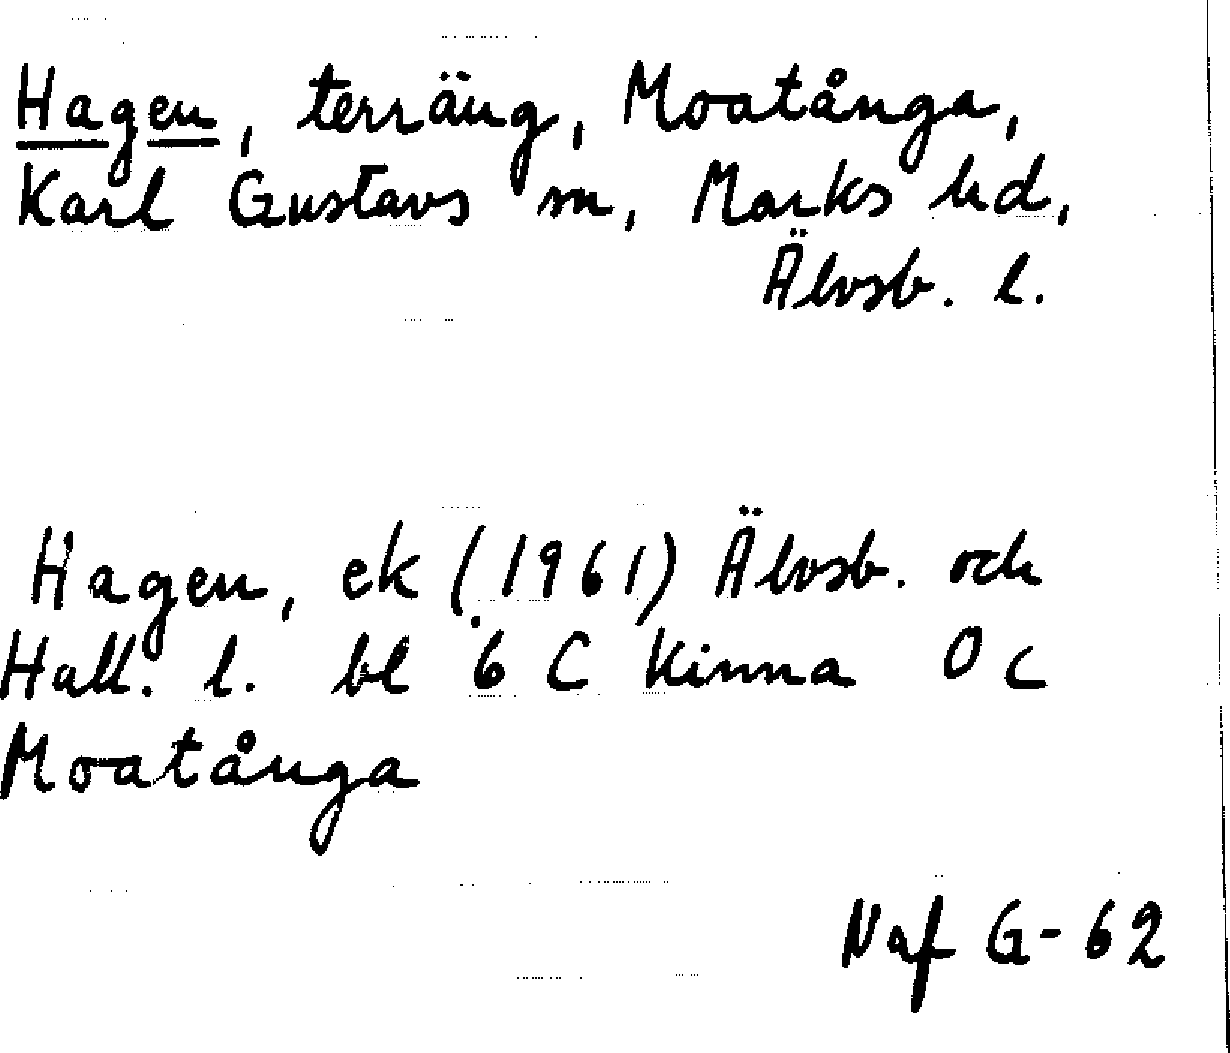 Hagen, terräng, Moatånga,
Karl Gustavs sn, Marks hd,
Älvsb. l.
Hagen, ek (1961) Älvsb. och
Hall. l. bl 6 C Kinna 0 c
Moatånga
Naf G-62